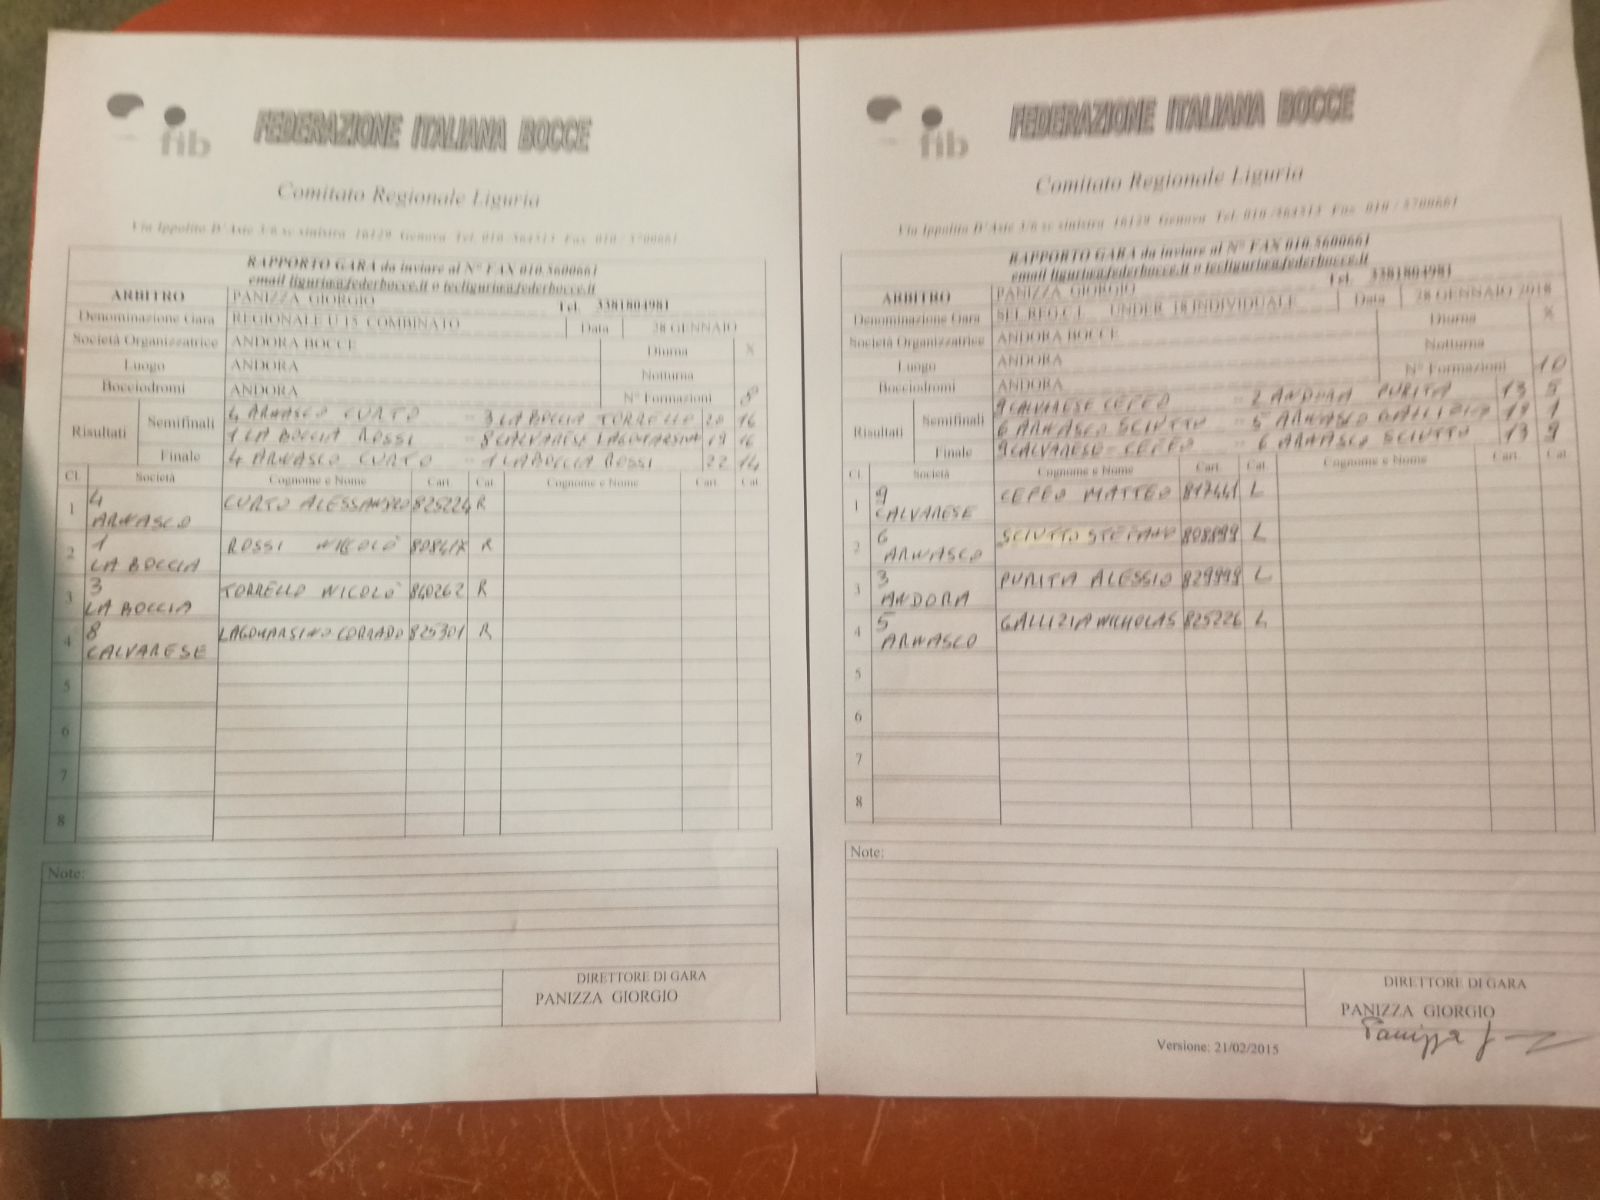 fib
FEDERAZIONE ITALIANA BOCCE
Comitato Regionale Liguria
Via Ippolito D'Aste 3/6 sc sinistra 16129 Genova Tel. 010 Fax 010 / 5700661
RAPPORTO GARA da inviare al N° FAX 010.5600661
email liguria@federbocce.it o tecliguria@federbocce.it
ARBITRO PANIZZA GIORGIO Tel. 3381804981
Denominazione Gara REGIONALE U 15 COMBINATO Data 28 GENNAIO
Società Organizzatrice ANDORA BOCCE Diurna X
Luogo ANDORA Notturna
Bocciodromi ANDORA N° Formazioni 8
Risultati Semifinali 4 ARNASCO CURTO - 3 LA BOCCIA TORRELLO 20 16
1 LA BOCCIA ROSSI - 8 CALVARESE LAGOMARSINO 19 16
Finale 4 ARNASCO CURTO - 1 LA BOCCIA ROSSI 22 14
Cl. Società Cognome e Nome Cart. Cat. Cognome e Nome Cart. Cat.
1 4 ARNASCO CURTO ALESSANDRO 825224 R
2 1 LA BOCCIA ROSSI NICCOLÒ R
3 3 LA BOCCIA TORRELLO NICOLÒ 840262 R
4 8 CALVARESE LAGOMARSINO CORRADO 825301 R
5
6
7
8
Note:
DIRETTORE DI GARA
PANIZZA GIORGIO
fib
FEDERAZIONE ITALIANA BOCCE
Comitato Regionale Liguria
Via Ippolito D'Aste 3/6 sc sinistra 16129 Genova Tel. 010 Fax 010 / 5700661
RAPPORTO GARA da inviare al N° FAX 010.5600661
email liguria@federbocce.it o tecliguria@federbocce.it
ARBITRO PANIZZA GIORGIO Tel. 3381804981
Denominazione Gara SEL.REG.C.I. UNDER 18 INDIVIDUALE Data 28 GENNAIO 2018
Società Organizzatrice ANDORA BOCCE Diurna X
Luogo ANDORA Notturna
Bocciodromi ANDORA N° Formazioni 10
Risultati Semifinali 9 CALVARESE CEPEO - 2 ANDORA PURITA 13 5
6 ARNASCO SCIUTTO - 5 ARNASCO GALLIZIA 1
Finale 9 CALVARESE - CEPEO - 6 ARNASCO SCIUTTO 13 9
Cl. Società Cognome e Nome Cart. Cat. Cognome e Nome Cart. Cat.
1 9 CALVARESE CEPEO MATTEO 817441 L
2 6 ARNASCO SCIUTTO STEFANO L
3 3 ANDORA PURITA ALESSIO 829999 L
4 5 ARNASCO GALLIZIA NICHOLAS 825226 L
5
6
7
8
Note:
DIRETTORE DI GARA
PANIZZA GIORGIO
Panizza G
Versione: 21/02/2015